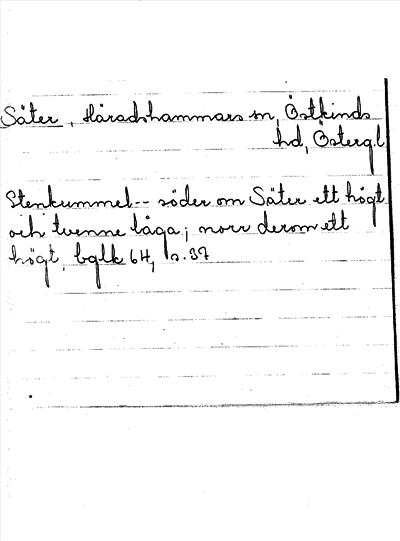 Säter, Häradshammars sn, Östkinds
hd, Östergl
Stenkummel -- söder om Säter ett högt
och tvenne låga; norr derom ett
högt, bglk 64, s. 37